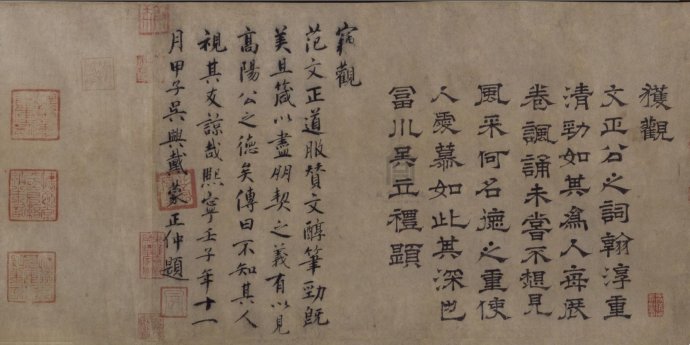 獲觀
文正公之詞翰淳重
清勁如其為人每展
卷諷誦未嘗不想見
風采何名德之重使
人愛慕如此其深也
富川吳立禮題
竊觀
范文正道服贊文醇筆勁既
美且箴以盡朋契之義有以見
高陽公之德矣傳曰不知其人
視其友諒哉熙寧壬子年十一
月甲子吳興戴蒙正仲題